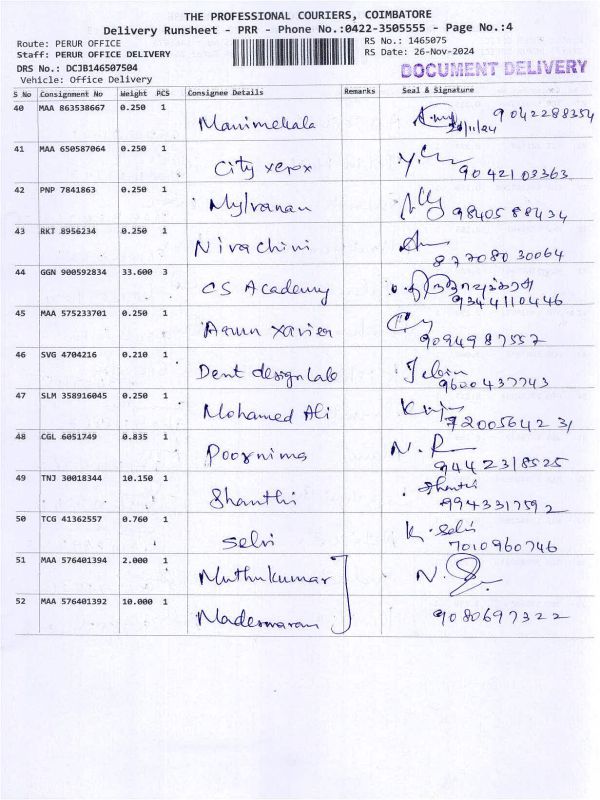 THE PROFESSIONAL COURIERS, COIMBATORE
Delivery Runsheet - PRR - Phone No.:0422-3505555 - Page No.:4
Route: PERUR OFFICE
Staff: PERUR OFFICE DELIVERY
DRS No.: DCJB146507504
Vehicle: Office Delivery
RS No.: 1465075
RS Date: 26-Nov-2024
DOCUMENT DELIVERY
S No Consignment No Weight PCS Consignee Details Remarks Seal & Signature
40 MAA 863538667 0.250 1 Manimekala 9042288354
26/11/24
41 MAA 650587064 0.250 1 City xerox 9042103363
42 PNP 7841863 0.250 1 Mylvanan 9840588434
43 RKT 8956234 0.250 1 Nirachini 87708030064
44 GGN 900592834 33.600 3 CS Academy 9344110446
45 MAA 575233701 0.250 1 Aarun xavier 9094987557
46 SVG 4704216 0.210 1 Dent design lab Jebin 9600437743
47 SLM 358916045 0.250 1 Mohamed Ali 7200564231
48 CGL 6051749 0.835 1 Poornima N. R 9442318525
49 TNJ 30018344 10.150 1 Shanthi Shanthi 9943317592
50 TCG 41362557 0.760 1 Selvi K. Selvi 7010960746
51 MAA 576401394 2.000 1 Muthukumar
52 MAA 576401392 10.000 1 Madeswaran 9080697322